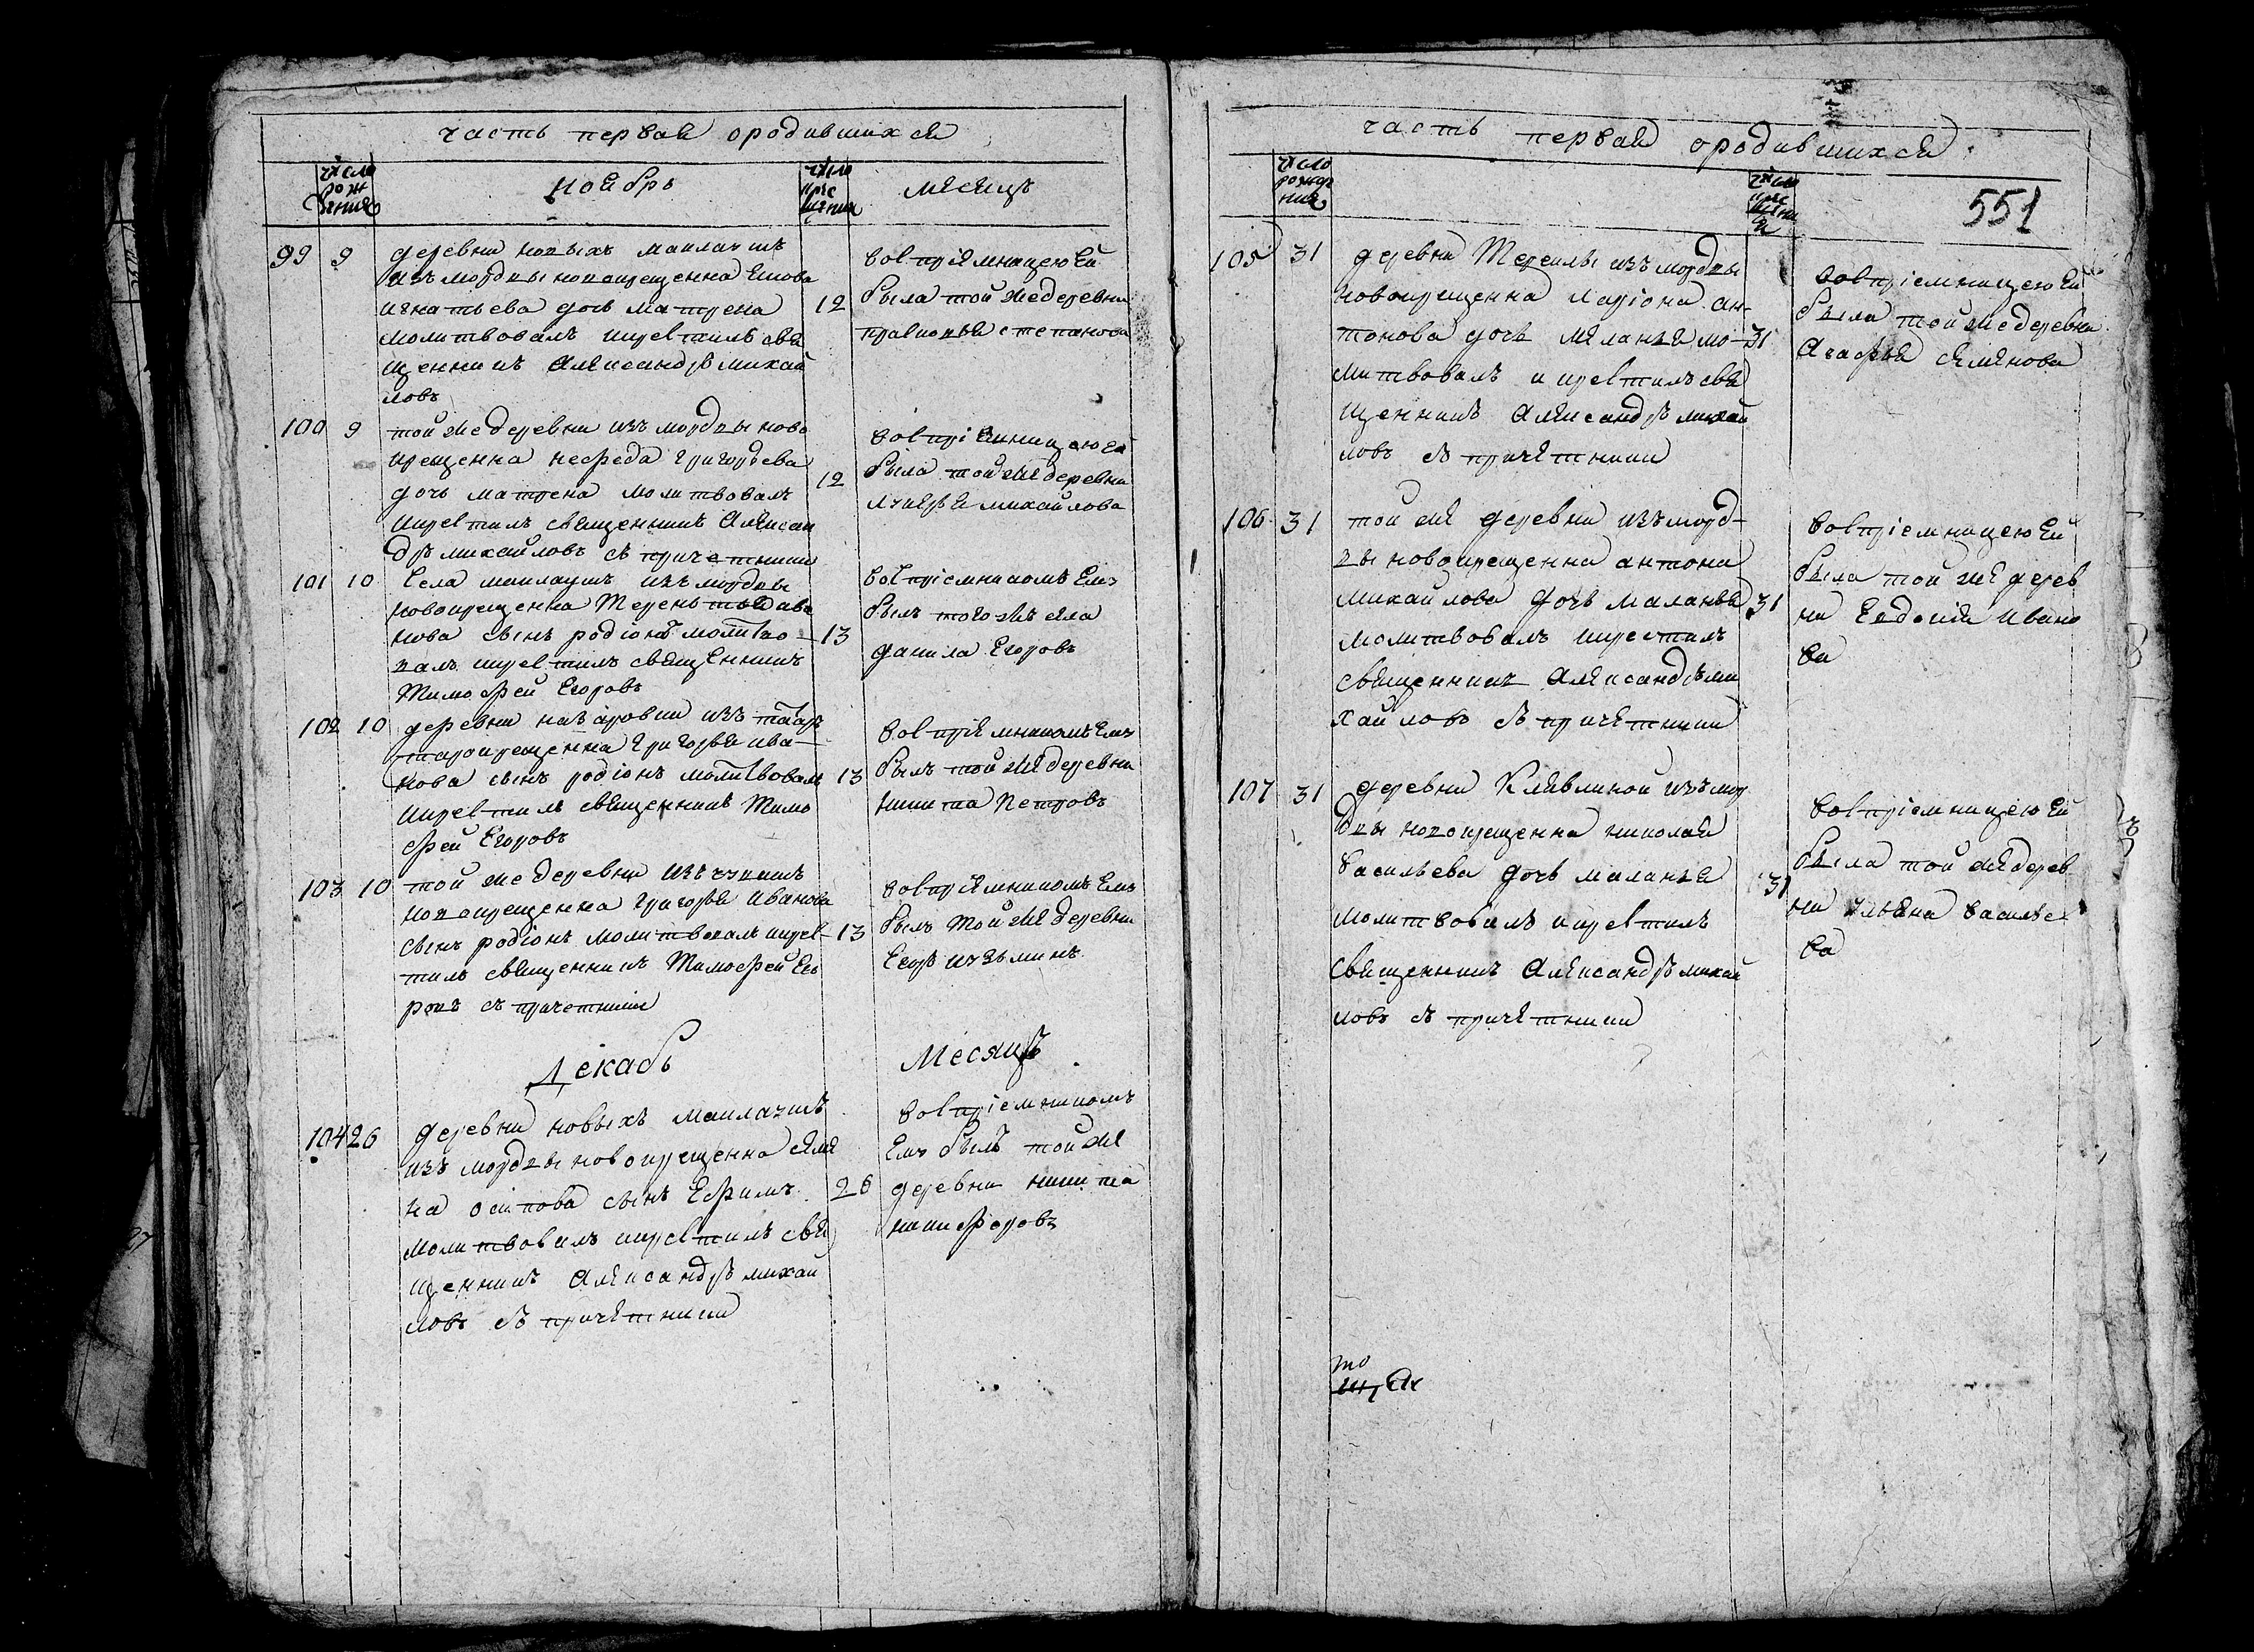 часть первая ородившихся
число рож дения
ноябрь
число крес щения
месяцъ
99 9 деревни новыхъ маклаушъ
изъ мордвы новокрещенна Якова
игнатьева дочь матрена 12
молитвовалъ икрестилъ свя
щенникъ Александръ михай
ловъ
восприемницею Ей
была той жедеревни
степанова
100 9 той жедеревни изъ мордвы ново
крещенна нефеда григорьева
дочь матрена молитвовалъ 12
икрестилъ священникъ Алексан
дръ михайловъ съ причетники
восприемницею Ей
была той же деревни
михайлова
101 10 села маклаушъ изъ мордвы
новокрещенна Терентья ива
нова сынъ родіонъ молитво 13
валъ икрестилъ священникъ
Тимофей Егоровъ
воспріемникомъ Ему
былъ того жъ села
данила Егоровъ
102 10 деревни назаровки изъ татаръ
старокрещенна григорья ива
нова сынъ родіонъ молитвовалъ 13
икрестилъ священникъ Тимо
фей Егоровъ
восприемникомъ Ему
былъ той же деревни
никита Петровъ
103 10 той же деревни изъ чувашъ
новокрещенна григорья Иванова
сынъ родіонъ молитвовалъ икрес 13
тилъ священникъ Тимофей Его
ровъ съ причетники
восприемникомъ Ему
былъ той же деревни
Егоръ кузьминъ
Декабрь
Месяцъ
104 26 деревни новыхъ маклаушъ
изъ мордвы новокрещенна семе
на осипова сынъ Ефимъ 26
молитвовалъ икрестилъ свя
щенникъ Александръ михай
ловъ съ причетники
воспріемникомъ
Ему былъ той же
деревни никита
никифоровъ
часть первая ородившихся
число рожде ния
число крес щени я
551
105 31 деревни Терсилы изъ мордвы
новокрещенна лариона ан
тонова дочь меланья мо 31
литвовалъ и крестилъ свя
щенникъ Александръ михай
ловъ съ причетники
воспріемницею Ей
была той жедеревни
Агафья семенова
106 31 той же деревни изъ морд
вы новокрещенна антона
михайлова дочь маланья 31
молитвовалъ икрестилъ
священникъ Александръ ми
хайловъ съ причетники
воспріемницею Ей
была той же дерев
ни Евдокія Ивано
ва
107 31 деревни Клявлиной изъ мор
двы новокрещенна николая
васильева дочь маланья 31
молитвовалъ икрестилъ
священникъ Александръ михай
ловъ съ причетники
воспріемницею Ей
была той же дерев
ни ульяна василье
ва
то